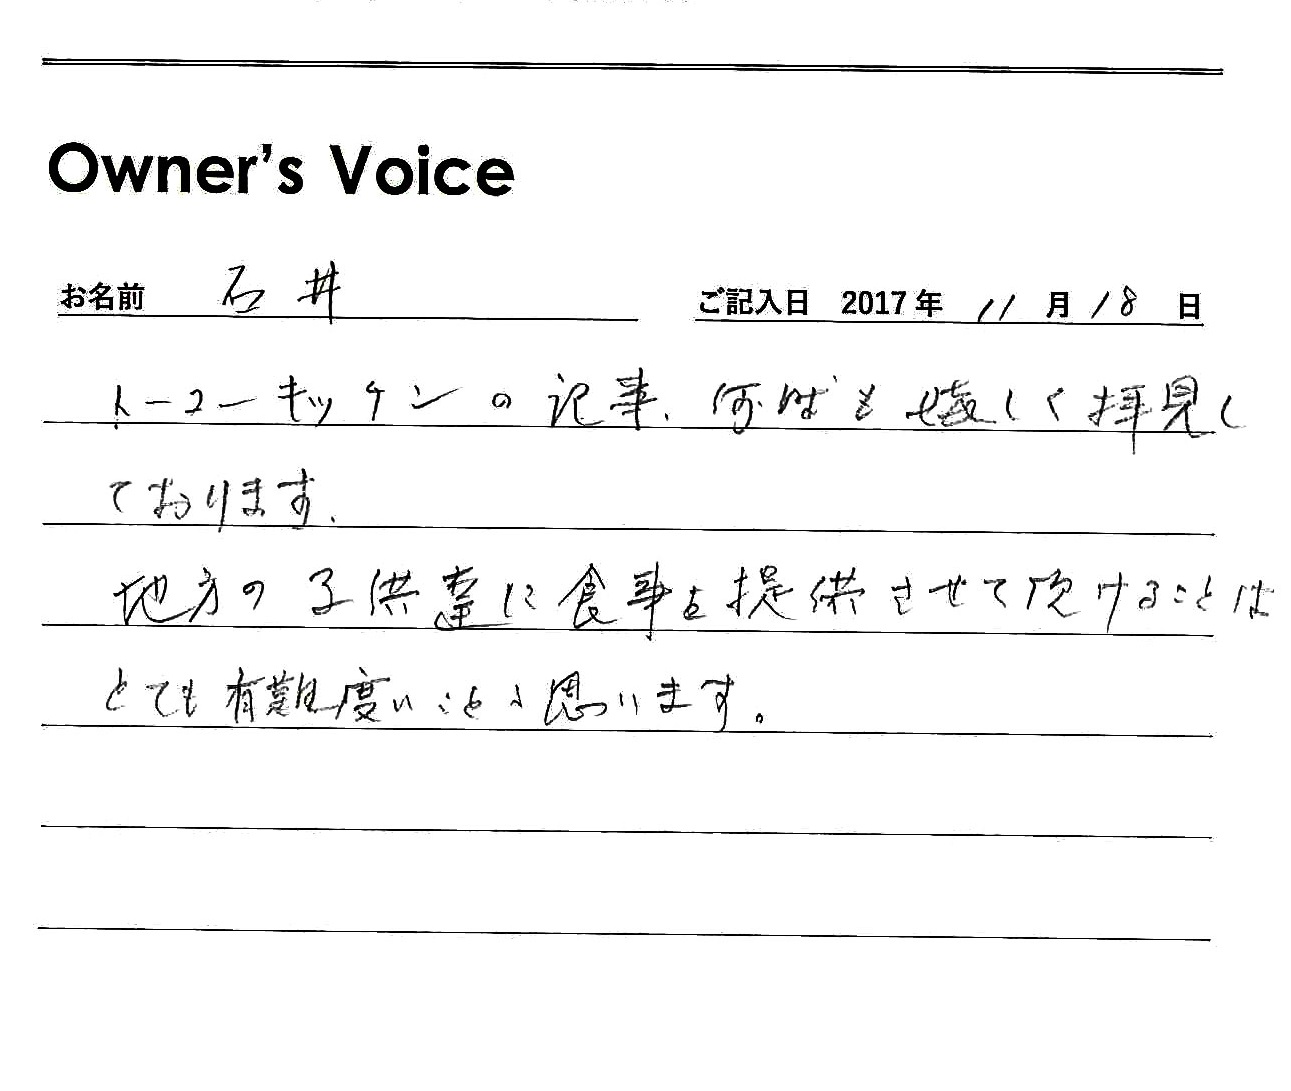 Owner's Voice
お名前 石井 ご記入日 2017年 11月18日
トーコーキッチンの記事、何時も嬉しく拝見し
ております。
地方の子供達に食事を提供させて頂けることは
とても有難度いことと思います。